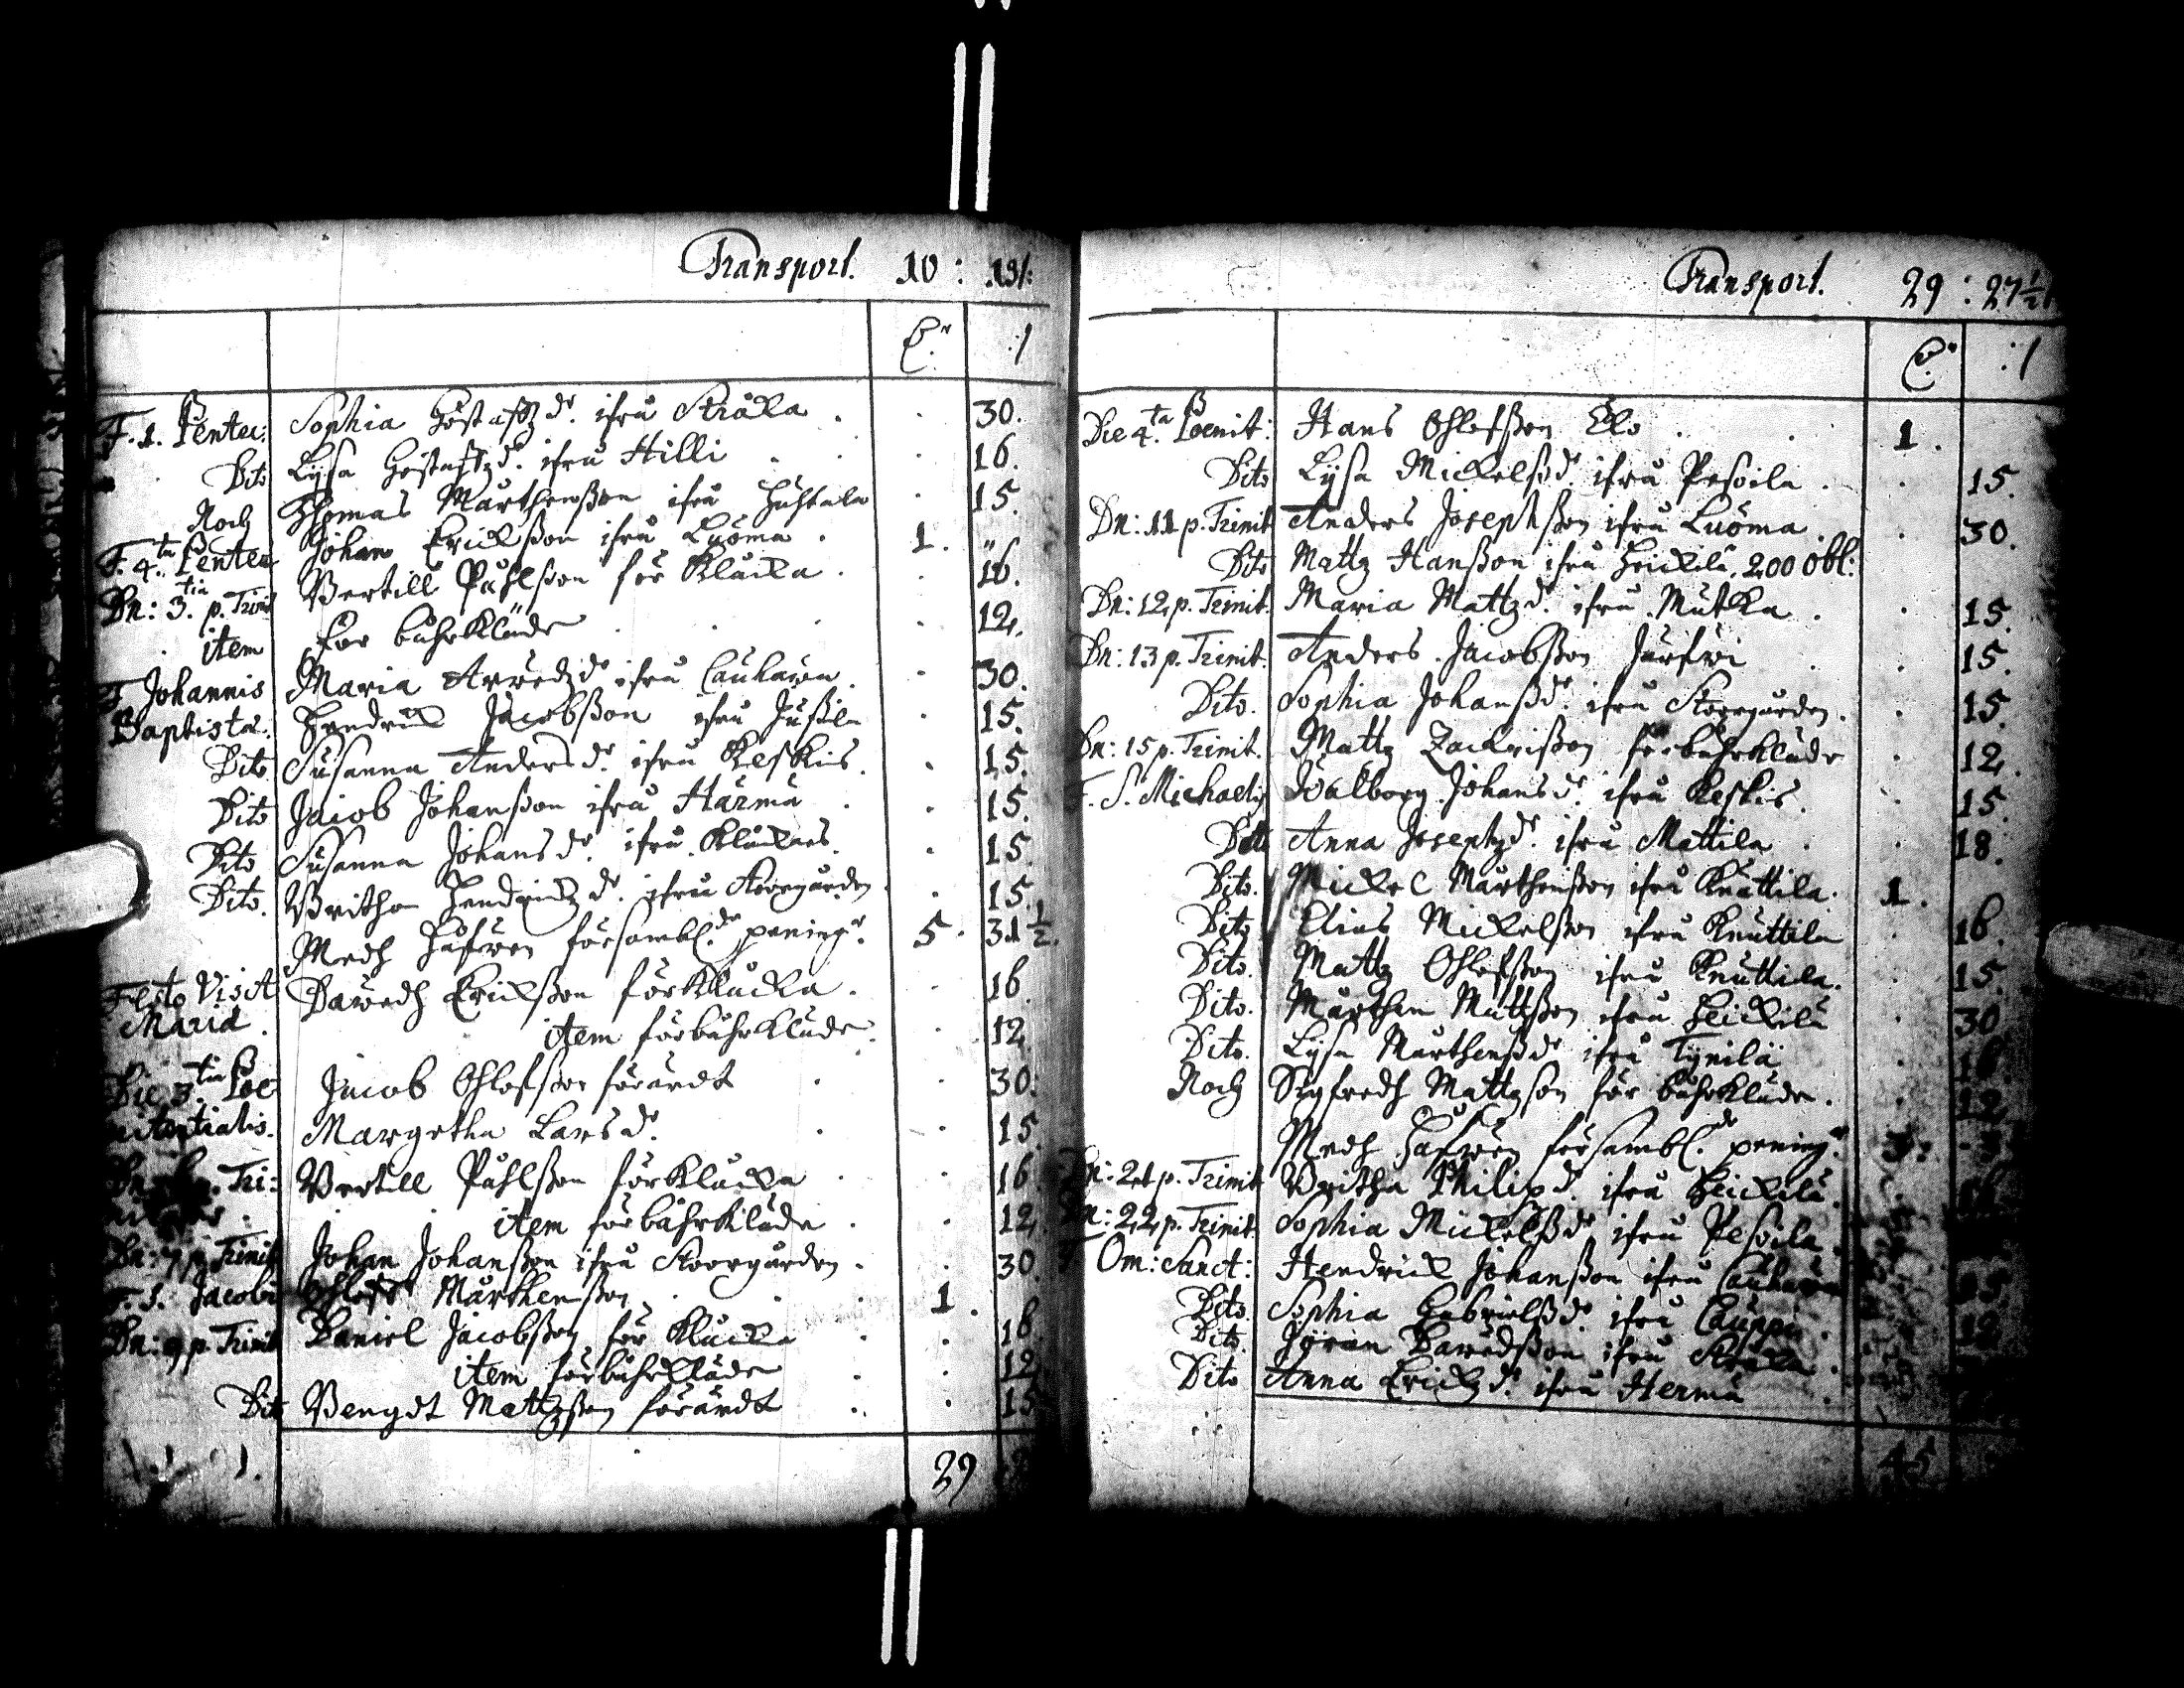 Transport. 10 : 131.
F. 1. Pentec: Sophia Göstaffz dr. ifrå Stråka . . 30.
Dito Lÿsa Göstaffz dr. ifrå Hilli . . 16.
Noch Thomas Mårthensson ifrå Huhtala . 15.
F. 4.ta Pentec Johan Ericksson ifrå Luoma . 1. "
Dn: 3.tia p. Trinit Bertill Påhlsson för Klåcka . . 16.
item för båhrkläde . . . 12.
F Johannis Maria Arwedz dr ifrå Cauhawa . . 30.
Baptistæ: Hendrick Jacobsson ifrå Jussila . 15.
Dito Susanna Anders dr. ifrå Keskis . . 15.
Dito Jacob Johansson ifrå Härmä . . 15.
Dito Susanna Johans dr. ifrå Klåckars . . 15.
Dito. Britha Hendrickz dr. ifrå Storegården . . 15.
Medh Håfwen försambl. de peningr. 5. 31 1/2.
Festo Visit Dawedh Ericksson för Klåcka . . 16
Mariæ . item för båhrkläde . . 12.
Die 3.tia Poe- Jacob Ohlofsson förärdt . . 30.
nitentialis. Margetha Lars dr. . . 15.
Tri: Bertill Påhlsson för Klåcka . . 16.
item för båhrkläde . . 12.
Dn: 7 p. Trinit Johan Johansson ifrå Storegården . . 30.
F. S. Jacobi Ohloff Mårthensson . . . 1.
Dn: 9 p. Trinit Daniel Jacobsson för Klåcka . . 16.
item för båhrkläde . . 12
Dito Bengdt Mattzson förärdt . . 15
29
Transport. 29 : 27 1/2
Die 4.ta Poenit: Hans Ohlofsson Elo . . 1.
Dito Lÿsa Mickelsdr. ifrå Pesoila . . 15.
Dn: 11 p. Trinit Anders Josephsson ifrå Luoma . . 30.
Dito Mattz Hansson ifrå Heickilä. 200 obl:
Dn: 12 p. Trinit. Maria Mattz dr. ifrå Mutka . . 15.
Dn: 13 p. Trinit. Anders Jacobsson Järfwi . . 15.
Dito. Sophia Johanss dr. ifrå Storegården . . 15.
Dn: 15 p. Trinit. Mattz Zachrisson för båhrkläde . 12.
F. S. Michaelis Walborg Johans dr. ifrå Keskis . . 15.
Dito Anna Josephz dr. ifrå Mattila . . 18.
Dito. Mickel Mårthensson ifrå Knuttila . 1.
Dito Elias Mickelsson ifrå Knuttila . 16.
Dito. Mattz Ohlofsson ifrå Knuttila . . 15.
Dito. Mårthen Mattsson ifrå Heickilä . 30
Dito. Lÿsa Mårthenss dr ifrå Tÿnilä . 16
Noch Sigfredh Mattzson för båhrkläde . . 12
Medh Håfwen försambl. de peningr
Dn: 21 p. Trinit Britha Philip dr. ifrå Heickilä
Dn: 22 p. Trinit. Sophia Mickelss dr ifrå Pesoila .
F Om: Sanct: Hendrick Johansson ifrå Cauhawa
Dito. Sophia Gabrielss dr. ifrå Cauppi .
Dito Jöran Dawedsson ifrå Stråka .
Dito Anna Erickz dr. ifrå Hermä
45